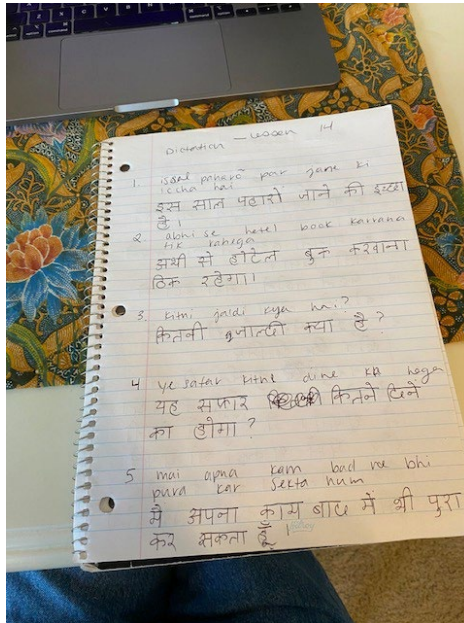 Dictation — Lesson 14
1. issal paharo par jane ki
iccha hai
इस साल पहारो जाने की इच्छा
है।
2. abhi se hotel book karvana
tik rahega
अभी से होटेल बुक करवाना
ठिक रहेगा।
3. Kitni jaldi kya hai?
कितनी जाल्दी क्या है?
4 ye safar kitne dine ka hoga
यह सफार कितने दिनें
का होगा?
5 mai apna kam bad me bhi
pura kar sekta hum
मै अपना काम बाद में भी पुरा
कर सकता हूँ।